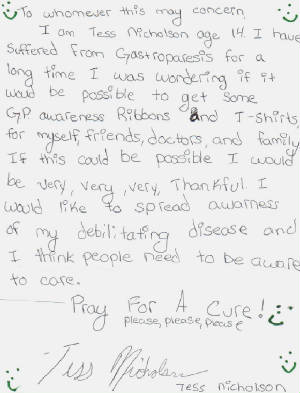 To whomever this may concern,
I am Tess Nicholson age 14. I have
suffered from Gastroparesis for a
long time I was wondering if it
woud be possible to get some
G.P. awareness Ribbons and T-Shirts
for myself, friends, doctors, and family
If this could be possible I would
be very, very, very, Thankful. I
would like to spread awarness
of my debilitating disease and
I think people need to be aware
to care.
Pray For A Cure!
please, please, please
Tess Nicholson
Tess Nicholson